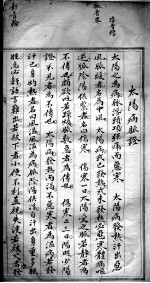 太陽病脈證
太陽之為病脈浮頭項強痛而惡寒 太陽病發熱汗出惡
風脈緩者名為中風 太陽病或已發熱或未發熱必惡寒體痛嘔
逆脈陰陽俱緊者名曰傷寒 傷寒一日太陽受之脈若靜者為
不傳頗欲吐若躁煩脈數急者為傳也 傷寒二三日陽明少陽
證不見者為不傳也 太陽病發熱而渴不惡寒者為溫病若發
汗已身灼熱者名曰風溫風溫為病脈陰陽俱浮自汗出身重多眠
睡息必鼾語言難出若被下者小便不利直視失溲若被火者發